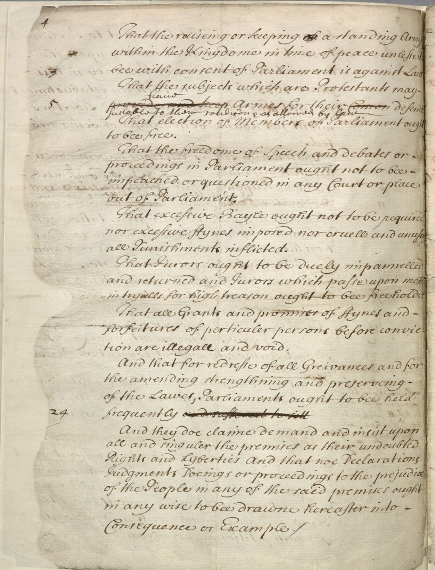 4
That the raiseing or keeping of a standing Army
within the Kingdome in time of peace unlesse it
bee with consent of Parliament is against Law
That the subjects which are Protestants may
have
provide and keep Armes for their common defence
suitable to their conditions as allowed by Law
5
That election of Members of Parliament ought
to bee free.
That the freedome of Speech and debates or
proceedings in Parliament ought not to bee
impeached or questioned in any Court or place
out of Parliament.
That excessive Bayle ought not to be required
nor excessive ffynes imposed nor cruell and unusuall
all Punishments inflicted.
That Jurors ought to be duely impannelled
and returned and Jurors which passe upon men
in tryalls for high treason ought to bee freeholders
That all Grants and promises of ffynes and
forfeitures of perticuler persons before convic
tion are illegall and void.
And that for redresse of all Greivances and for
the amending strengthning and preserveing
of the Lawes, Parliaments ought to bee held
24
frequently and suffered to sitt
And they doe claime demand and insist upon
all and singuler the premises as their undoubted
Rights and Lyberties And that noe Declarations
Judgments Doeings or proceedings to the prejudice
of the People in any of the said premises ought
in any wise to be drawne hereafter into
Consequence or Example /